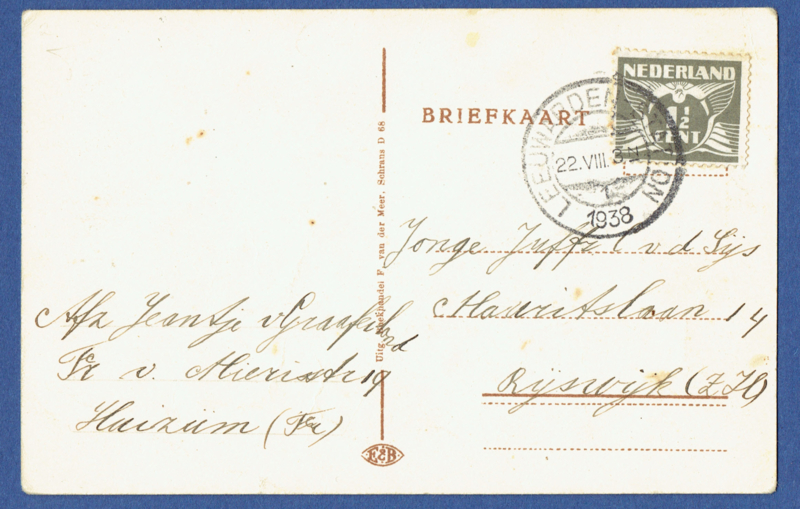 BRIEFKAART
NEDERLAND
1½
CENT
LEEUWARDEN STATION
22.VIII.3
1938
Jonge Juffr. l v d Sijs
Mauritslaan 14
Rijswijk (Z.H.)
Afz Jeantje v Graaf
Fr v. Mierisstr 19
Huizum (Fr)
Uitg. Boekhandel F. van der Meer, Schrans D 68
E&B